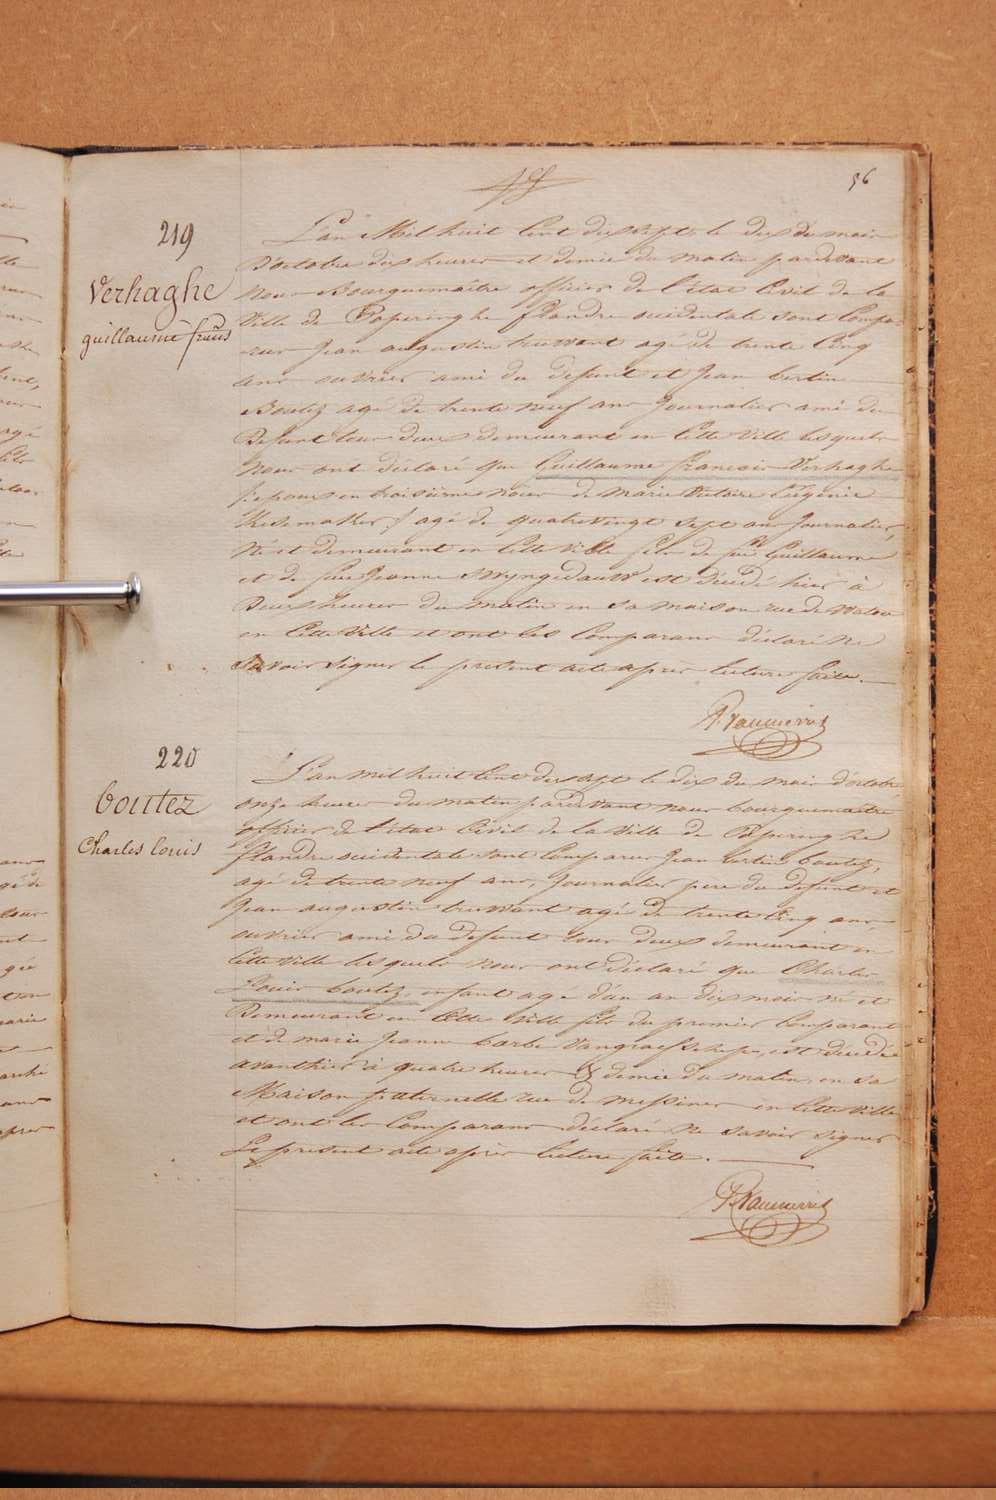 56
219
Verhaghe
guillaume frans
L'an Mil huit Cent dix sept, le dix du mois
D'octobre dix heures et demie du matin pardevant
nous Bourguemaître officier de l'état Civil de la
Ville de Poperinghe flandre occidentale sont Compa-
-rus Jean augustin truwant agé de trente Cinq
ans ouvrier ami du defunt et Jean bertin
Boutez agé de trente neuf ans Journalier ami du
Defunt tous deux demeurant en Cette Ville lesquels
nous ont déclaré que Guillaume francois Verhaghe
epoux en troisième noces de marie Victoire Eugenie
agé de quatrevingt sept ans Journalier,
Né et demeurant en Cette Ville fils de feu Guillaume
et de feue Jeanne Wyngedauw est décédé hier à
Deux heures du matin en sa maison rue de Watou
en Cette Ville et ont les Comparans déclaré Ne
Savoir signer le present acte apres lecture faite.
220
boutez
Charles louis
L'an mil huit Cent dix sept le dix du mois d'octobre
onze heures du matin pardevant nous bourguemaitre
officier de l'état Civil de la Ville de Poperinghe
flandre occidentale sont Comparus Jean bertin boutez,
agé de trente neuf ans, Journalier père du defunt et
Jean augustin truwant agé de trente Cinq ans
ouvrier ami du defunt tous deux demeurant en
Cette Ville lesquels nous ont déclaré que Charles
Louis boutez, enfant agé d'un an dix mois né et
Demeurant en Cette Ville fils du premier Comparant
et de marie Jeanne barbe est décédé
avanthier à quatre heures & demie du matin, en sa
Maison paternelle rue de messines en Cette Ville
et ont les Comparans déclaré ne savoir signer
Le present acte après lecture faite.